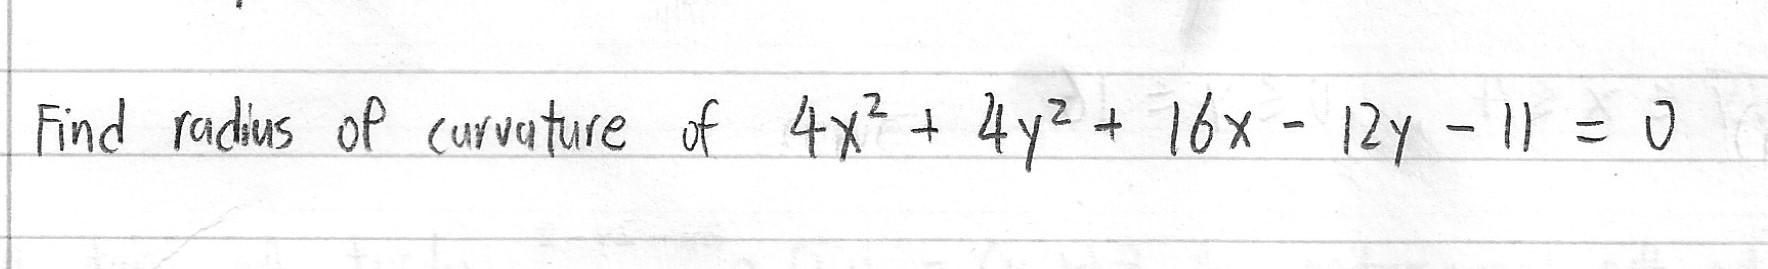 Find radius of curvature of 4x² + 4y² + 16x - 12y - 11 = 0